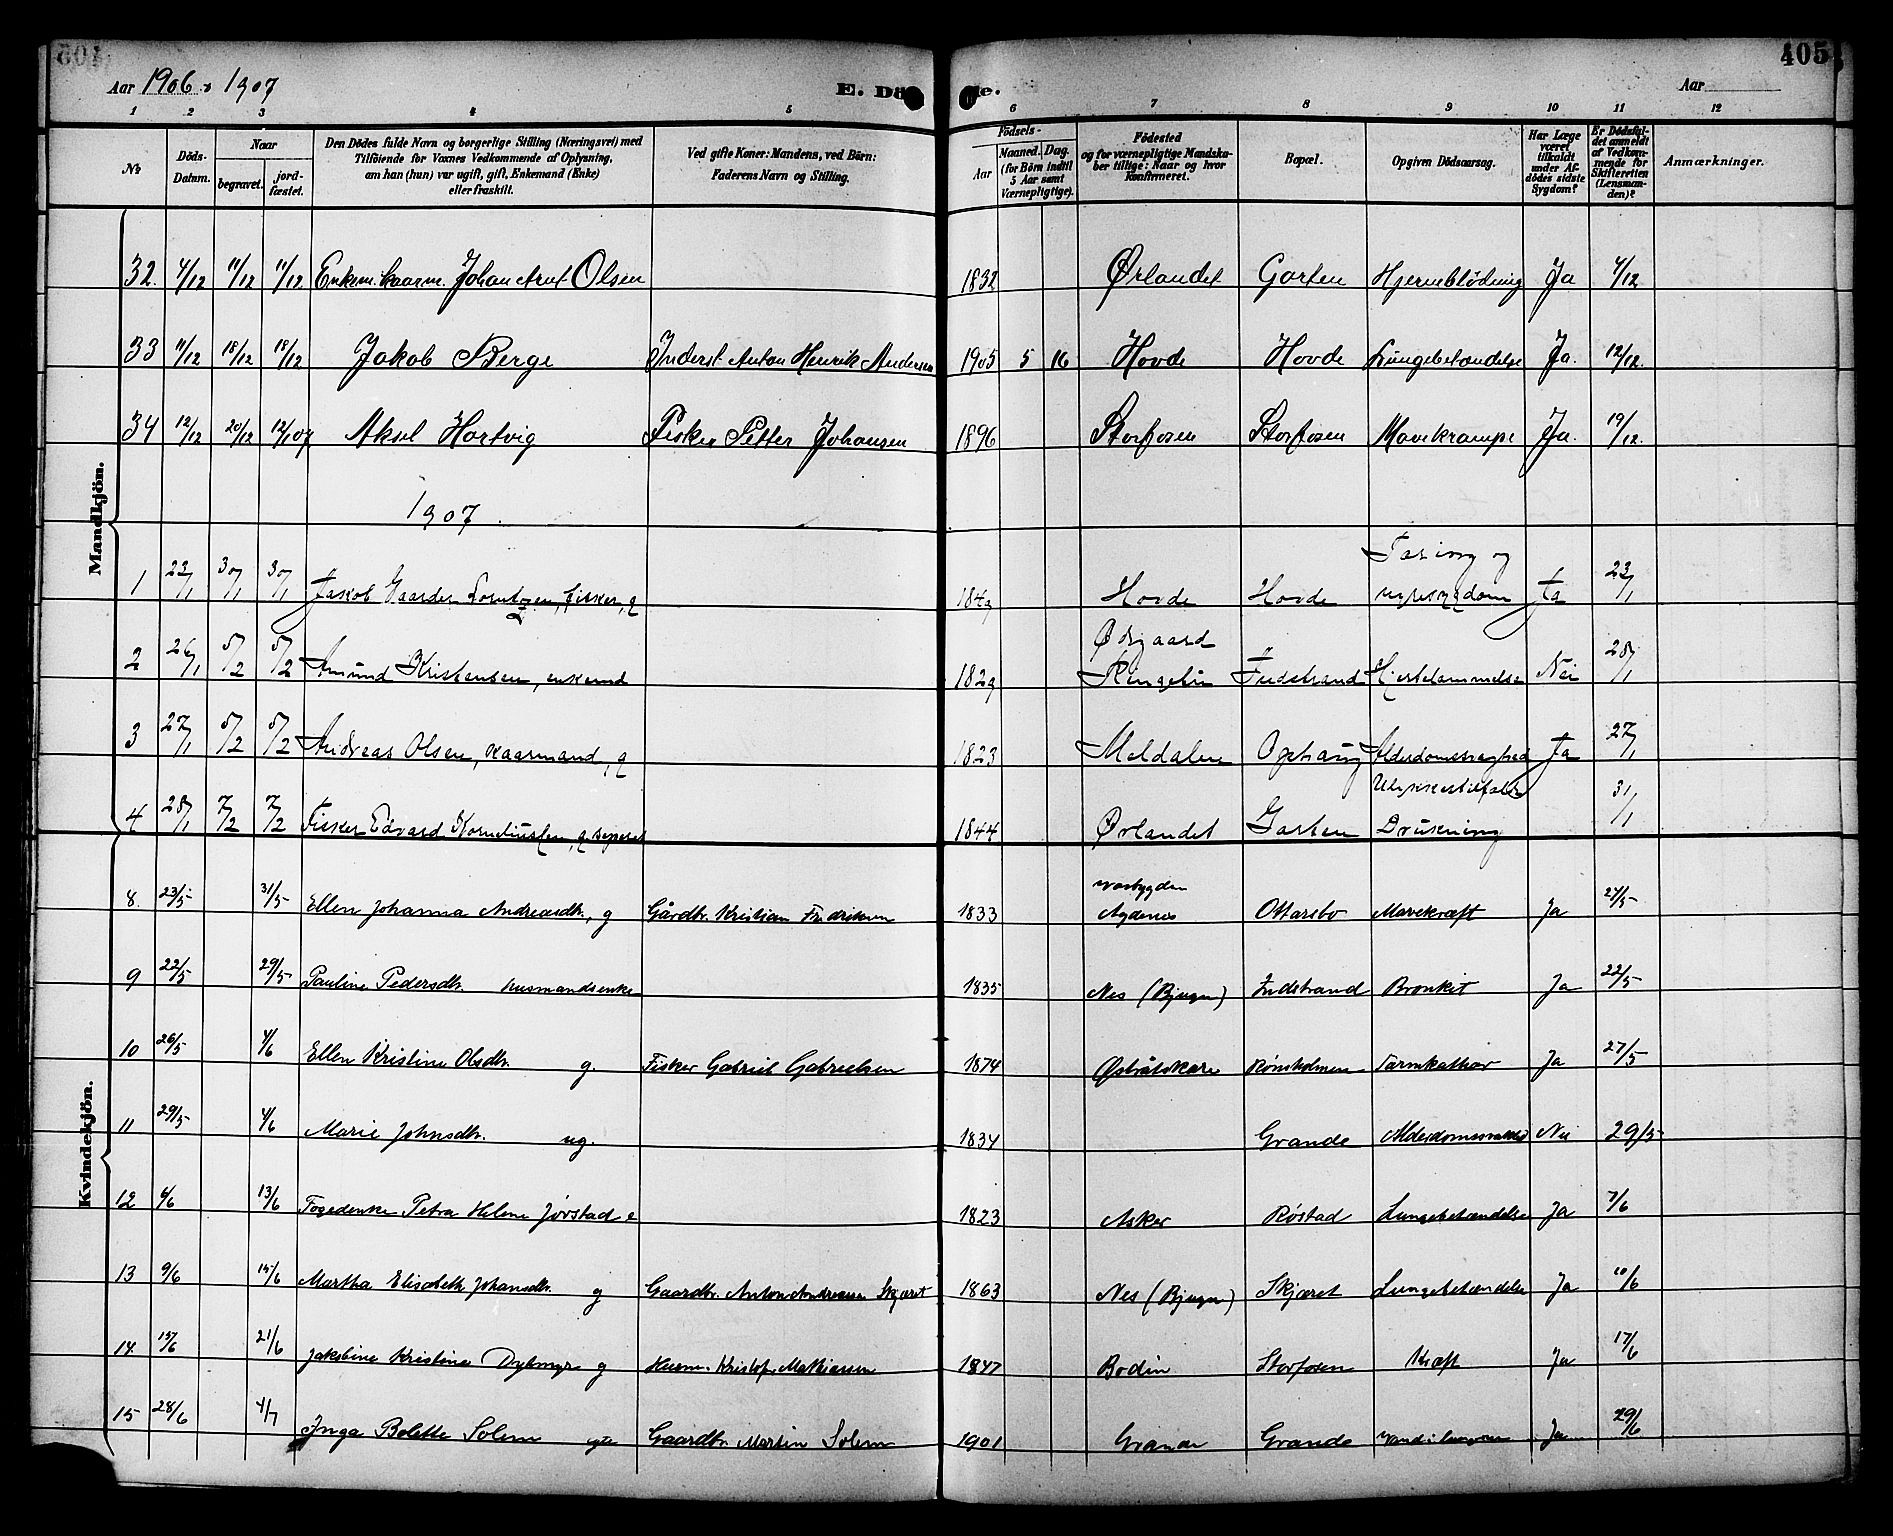 405
Aar 1906 & 1907 E. Dö de. Aar
1 2 3 4 5 6 7 8 9 10 11 12
No. Döds-Datum. Naar begravet. jord-fæstet. Den Dödes fulde Navn og borgerlige Stilling (Næringsvei) med Tilföiende for Voxnes Vedkommende af Oplysning, om han (hun) var ugift, gift, Enkemand (Enke) eller fraskilt. Ved gifte Koner: Mandens, ved Börn: Faderens Navn og Stilling. Födsels- Aar Maaned. Dag. (for Börn indtil 5 Aar samt Værnepligtige). Födested og for værnepligtige Mandskaber tillige: Naar og hvor Konfirmeret. Bopæl. Opgiven Dödsaarsag. Har Læge været tilkaldt under Afdödes sidste Sygdom? Er Dödsfaldet anmeldt af Vedkommende for Skifteretten (Lensmanden)? Anmærkninger.
Mandkjön.
32. 4/12 11/12 11/12 Enkem. kaarm. Johan Arnt Olsen 1832 Ørlandet Garten Hjerneblödning Ja 4/12
33 11/12 18/12 18/12 Jakob Berge Inderst Anton Henrik Andersen 1905 5 16 Hovde Hovde Lungebetændelse Ja. 12/12.
34 12/12 20/12 12/1 07 Aksel Hartvig Fisker Petter Johansen 1896 Storfosen Storfosen Mavekrampe Ja. 19/12.
1907.
1 23/1 30/1 30/1 Jakob Gaarder Lorntzen, fisker, g 1849 Hovde Hovde Tæring og nyresygdom Ja 23/1
2 26/1 5/2 5/2 Amund Kristensen, enkemd 1829 Ødegaard Ringebu Indstrand Hjertelammelse Nei 28/1
3 27/1 5/2 5/2 Andreas Olsen, kaarmand, g 1823 Meldalen Ophaug Alderdomssvaghed Ja 27/1
4 28/1 7/2 7/2 Fisker Edvard Korneliussen, g seperet 1844 Ørlandet Garten Ulykkestilfælde Drukning 31/1
Kvindekjön.
8. 23/5 31/5 Ellen Johanna Andreasdtr., g Gårdbr. Kristian Fredriksen 1833 Agdenes Ottersbo Mavekræft Ja 27/5
9 22/5 29/5 Pauline Pedersdtr. husmandsenke 1835 Nes (Bjugn) Indstrand Bronkit Ja 22/5
10 26/5 4/6 Ellen Kristine Olsdtr. g. Fisker Gabriel Gabrielsen 1874 Østråtskare Kømsholmen Tarmkathar Ja 27/5
11 29/5 4/6 Marie Johnsdtr. ug. 1834 Grande Nei 29/5
12 6/6 13/6 Fogedenke Petra Helene Jørstad e 1823 Asker Røstad Lungebetændelse Ja 7/6
13 9/6 15/6 Martha Elisabeth Johansdtr. g Gaardbr. Anton Andreasen Skjæret 1863 Nes (Bjugn) Skjæret Lungebetændelse Ja 10/6
14. 15/6 21/6 Jakobine Kristine Dybmyr g Husm. Kristof. Mathiassen 1847 Bodin Storfosen Kræft Ja 17/6
15 28/6 4/7 Inga Bolette Solem Gaardbr. Martin Solem 1901 Grande Grande Ja 29/6